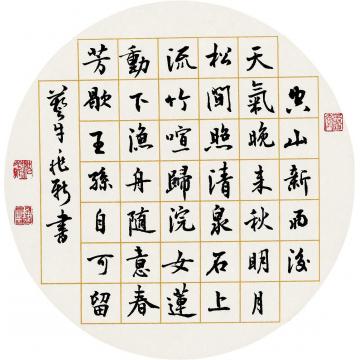 空山新雨後
天氣晚来秋明月
松間照清泉石上
流竹喧歸浣女蓮
動下漁舟随意春
芳歇王孫自可留
書